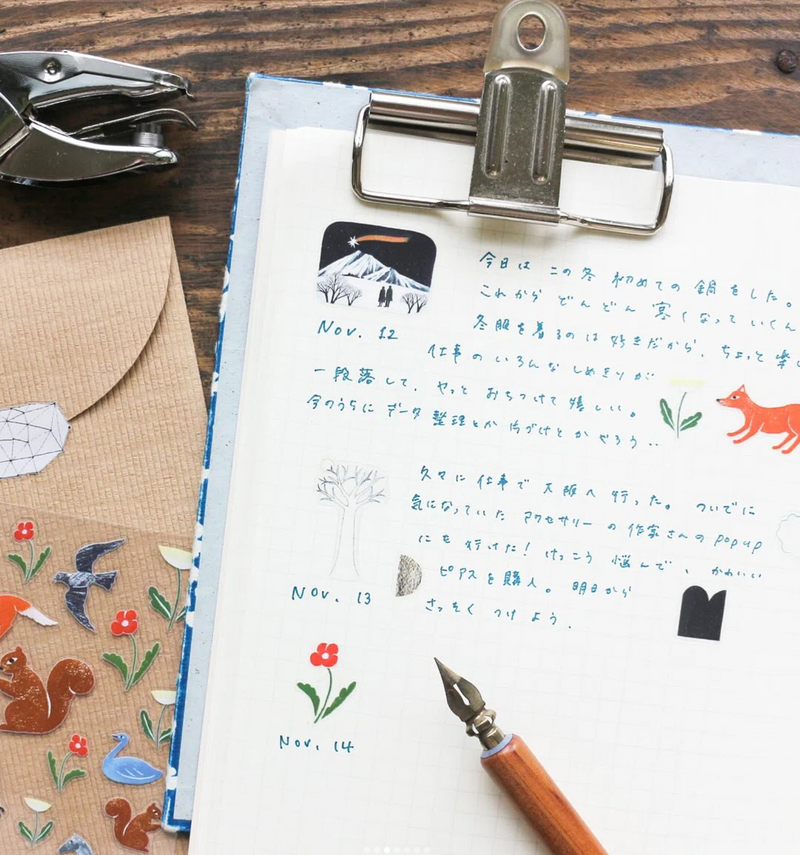 今日は この冬 初めての 鍋をした。
これから どんどん 寒くなっていくん
Nov. 12
冬服を着るのは好きだから、ちょっと楽し
仕事の いろんな しめきりが
一段落して、やっと おちつけて 嬉しい。
今のうちに データ整理とか 片づけとか やろう..
久々に 仕事で 大阪へ 行った。 ついでに
気になっていた アクセサリーの 作家さんの popup
にも 行けた！ けっこう 悩んで、かわいい
ピアスを購入。 明日から
Nov. 13
さっそく つけよう.
Nov. 14